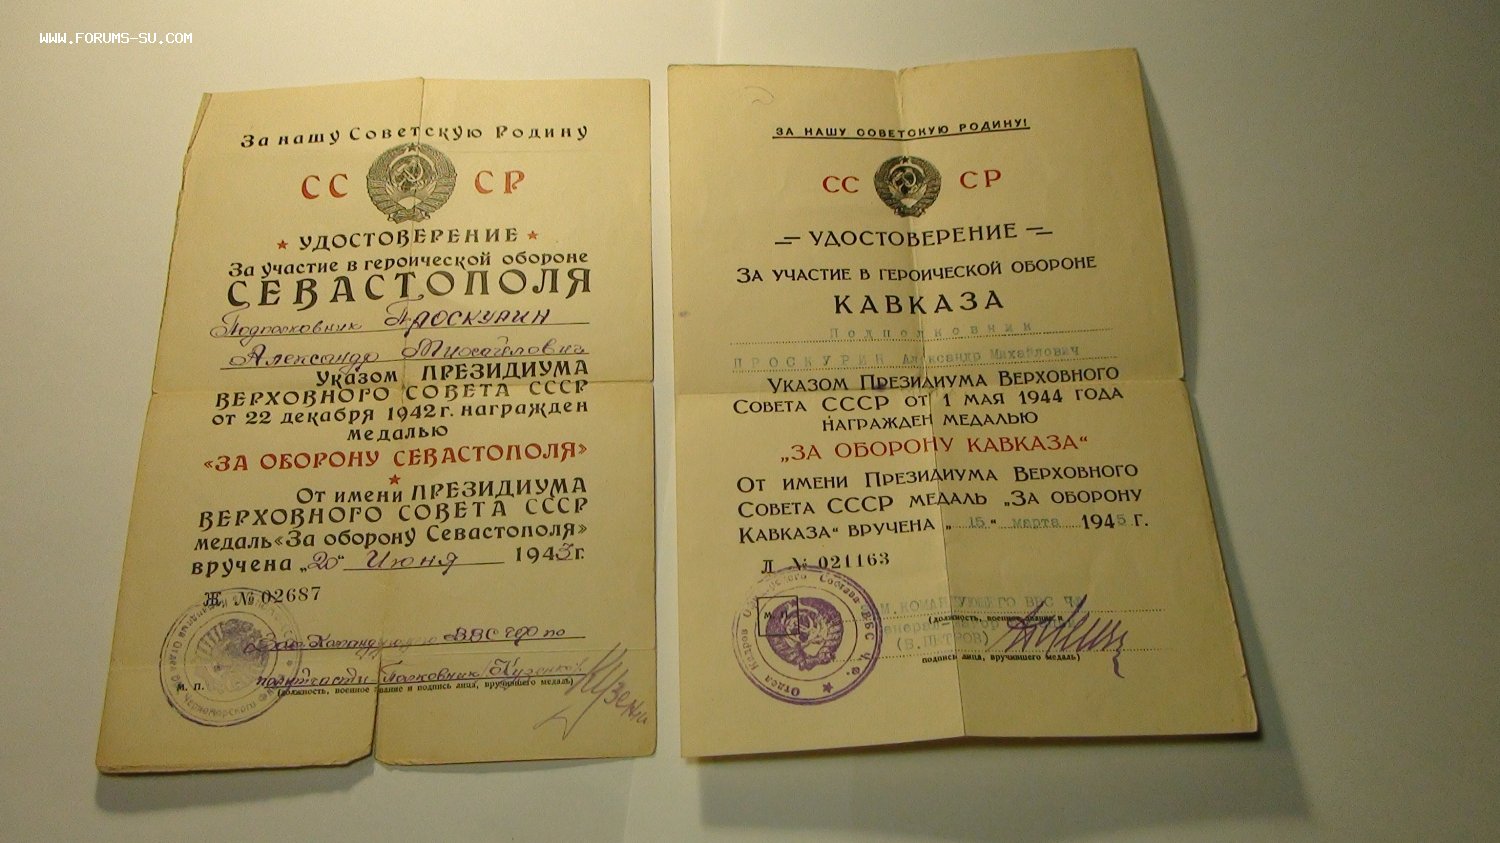 WWW.FORUMS-SU.COM
За нашу Советскую Родину
СС СР
УДОСТОВЕРЕНИЕ
За участие в героической обороне
СЕВАСТОПОЛЯ
Подполковник Проскурин
Александр Михайлович
Указом ПРЕЗИДИУМА
ВЕРХОВНОГО СОВЕТА СССР
от 22 декабря 1942 г. награжден
медалью
«ЗА ОБОРОНУ СЕВАСТОПОЛЯ»
От имени ПРЕЗИДИУМА
ВЕРХОВНОГО СОВЕТА СССР
медаль «За оборону Севастополя»
вручена „20“ Июня 1943 г.
Ж № 02687
Зам Командующего ВВС ЧФ по
политчасти Полковник
М. П.
(должность, военное звание и подпись лица, вручившего медаль)
ЗА НАШУ СОВЕТСКУЮ РОДИНУ!
СС СР
УДОСТОВЕРЕНИЕ
ЗА УЧАСТИЕ В ГЕРОИЧЕСКОЙ ОБОРОНЕ
КАВКАЗА
Подполковник
ПРОСКУРИН Александр Михайлович
УКАЗОМ ПРЕЗИДИУМА ВЕРХОВНОГО
СОВЕТА СССР ОТ 1 МАЯ 1944 ГОДА
НАГРАЖДЕН МЕДАЛЬЮ
„ЗА ОБОРОНУ КАВКАЗА“
ОТ ИМЕНИ ПРЕЗИДИУМА ВЕРХОВНОГО
СОВЕТА СССР МЕДАЛЬ „ЗА ОБОРОНУ
КАВКАЗА“ ВРУЧЕНА „15“ марта 1945 г.
Л № 021163
М. П.
КОМАНДУЮЩЕГО ВВС
(должность, военное звание и
подпись лица, вручившего медаль)
Отдел Кадров Офицерского Состава ВВС Ч.Ф.